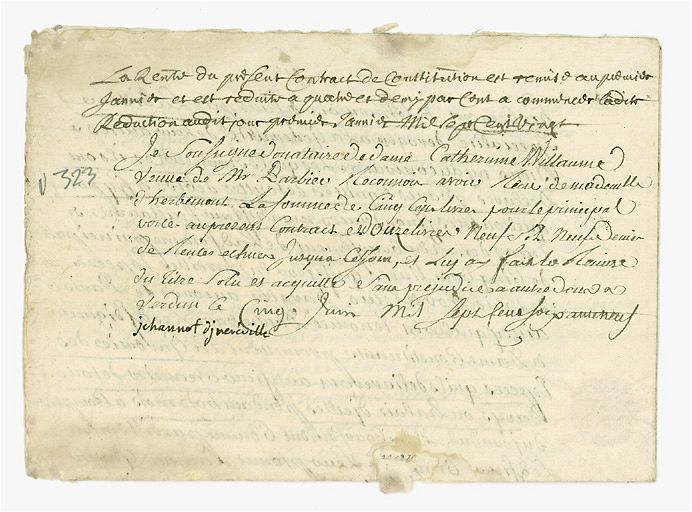 La Rente du présent Contract de Constitution est remise au premier
Janvier et est réduite a quatre et demi par Cent a commencer ladite
Reduction audit jour premier Janvier Mil Sept Cent vingt
Je Soussigne donataire de dame Catherinne Willaume
veuve de Mr Barbier Reconnois avoir Receu de mademelle
d'herbemont La somme de Cinq Cent livres pour le principal
porté au present Contract et Douze livres Neuf sols Neuf deniers
de Rentes echues Jusqu'a Ce Jour, et luy ay fait la Remise
du titre Solu et acquitté sans prejudice a autre deub a
Verdun le Cinq Juin Mil Sept Cent soixante neuf
jehannot djnreville
v 323